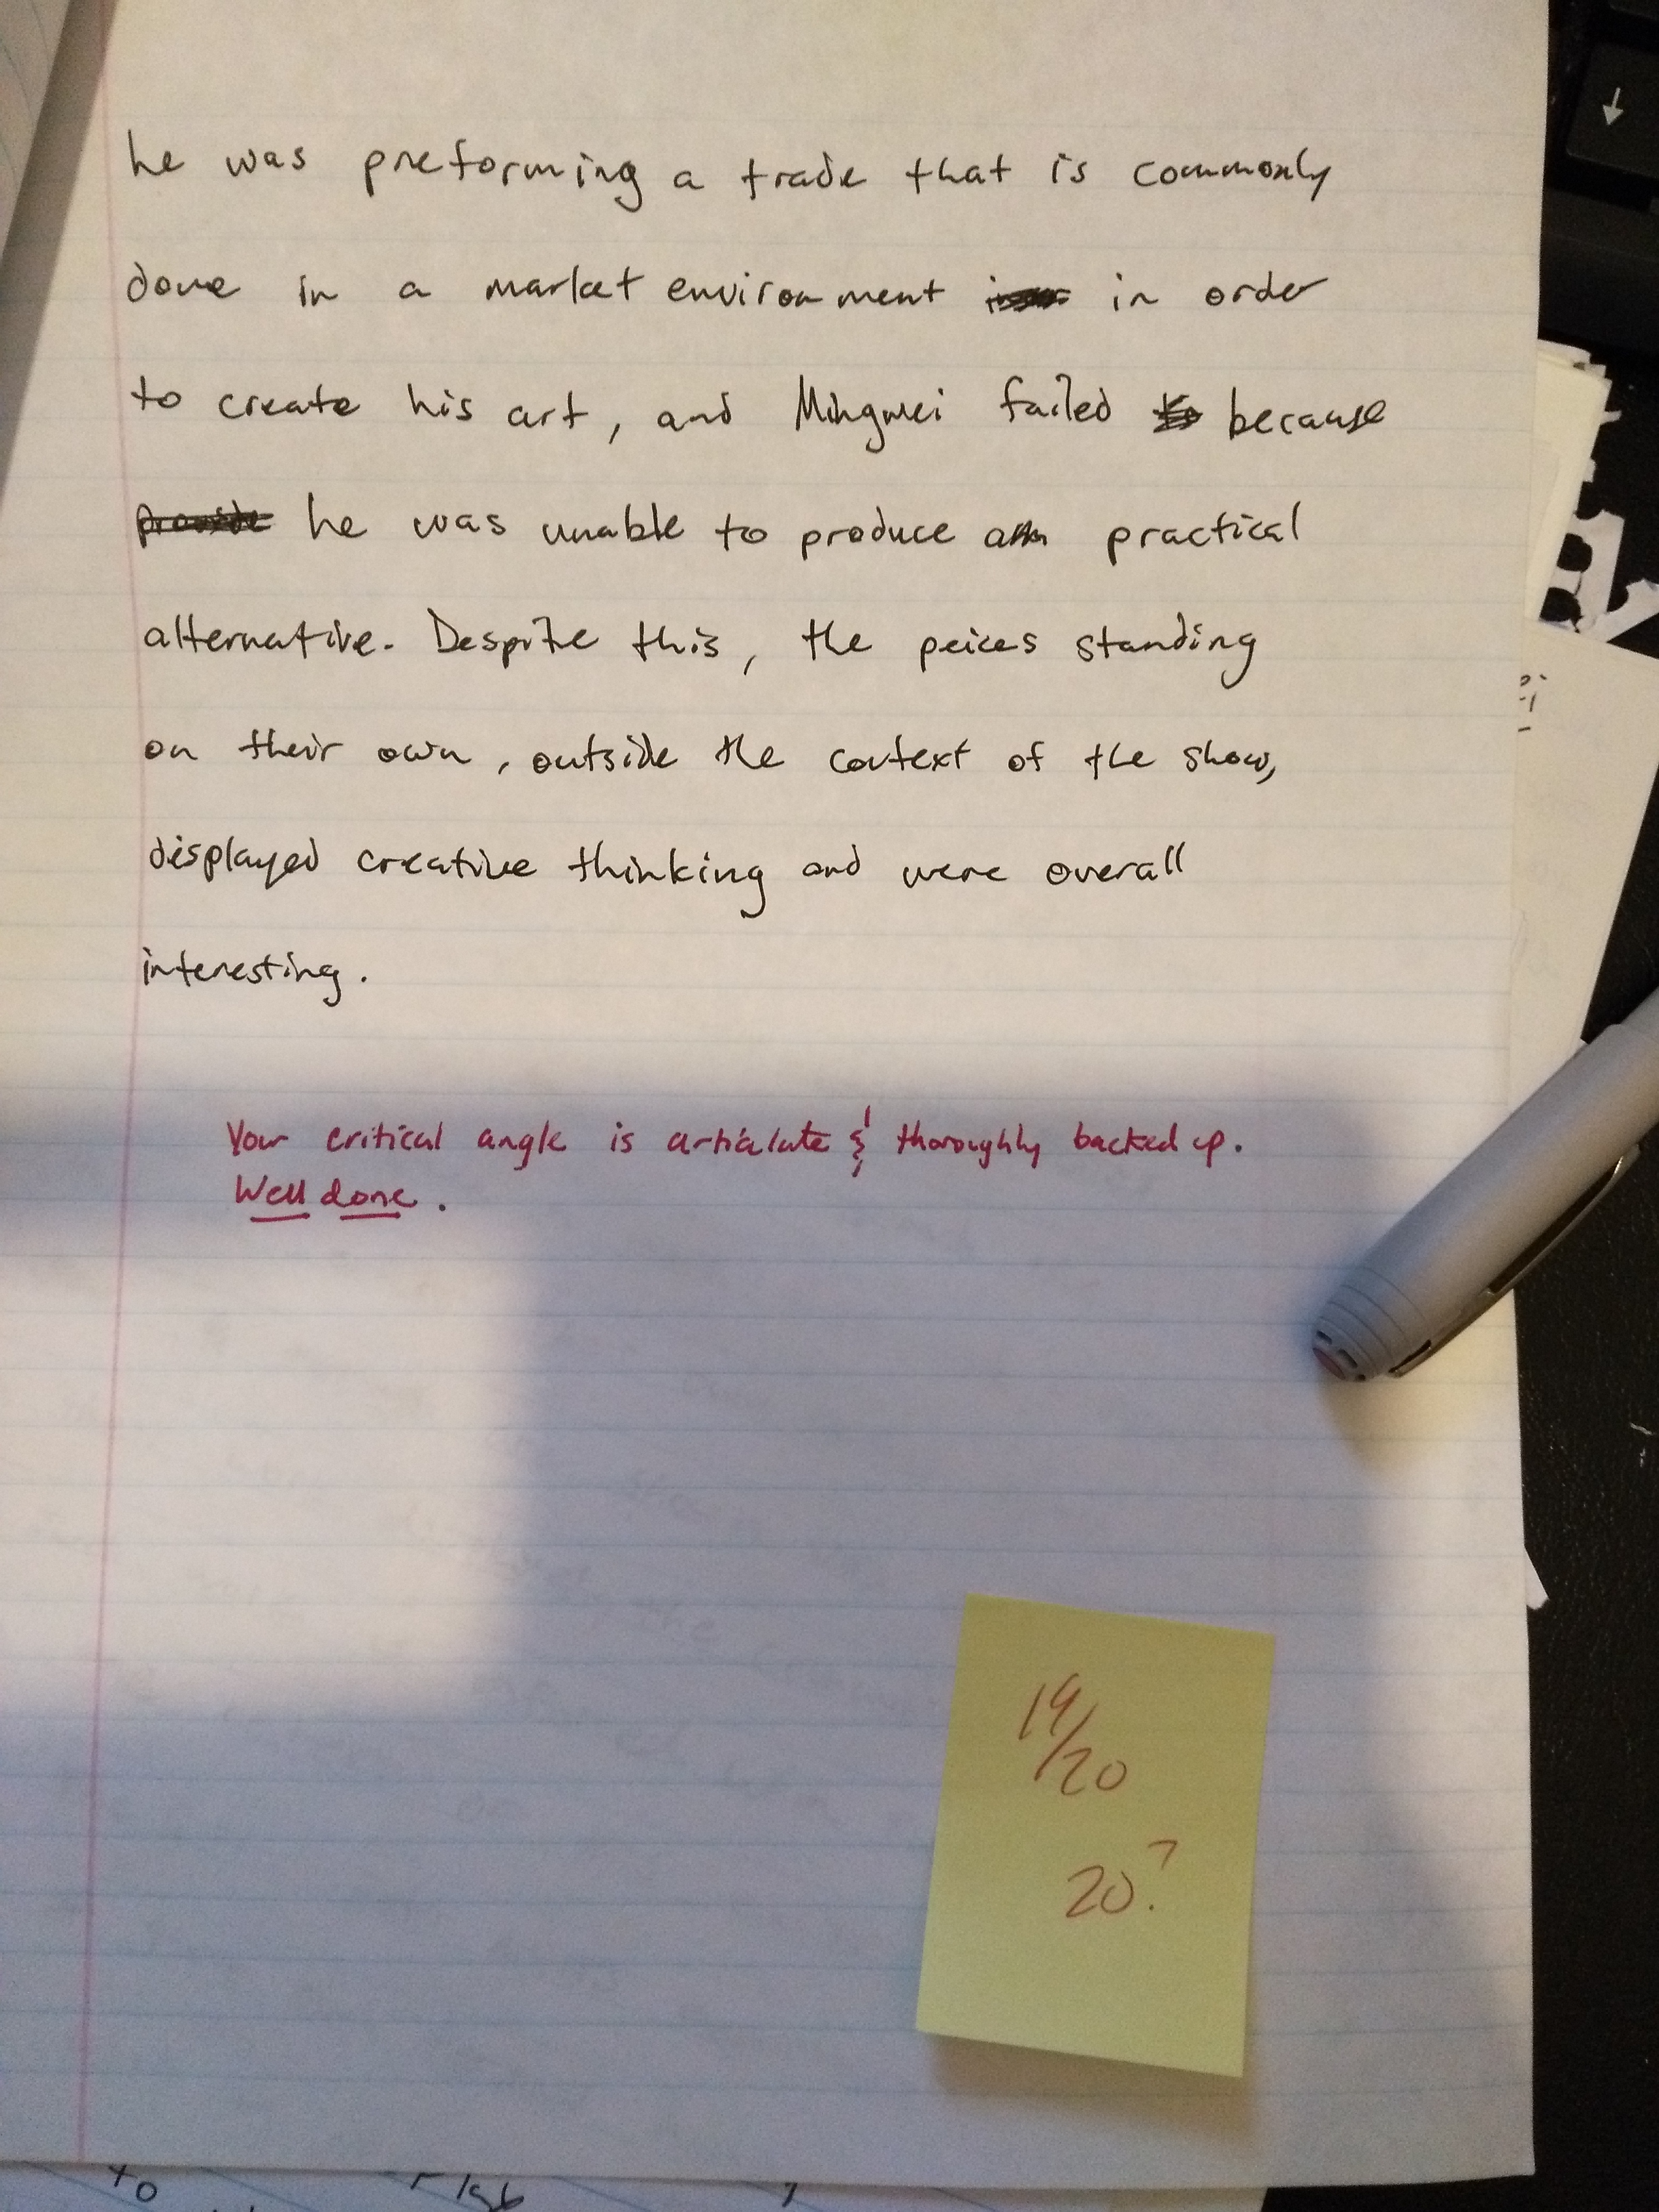 he was preforming a trade that is commonly
done in a market environment in order
to create his art, and Mingwei failed because
he was unable to produce a practical
alternative. Despite this, the peices standing
on their own, outside the context of the show,
displayed creative thinking and were overall
interesting.
Your critical angle is articulate & thoroughly backed up.
Well done.
19/20
20?